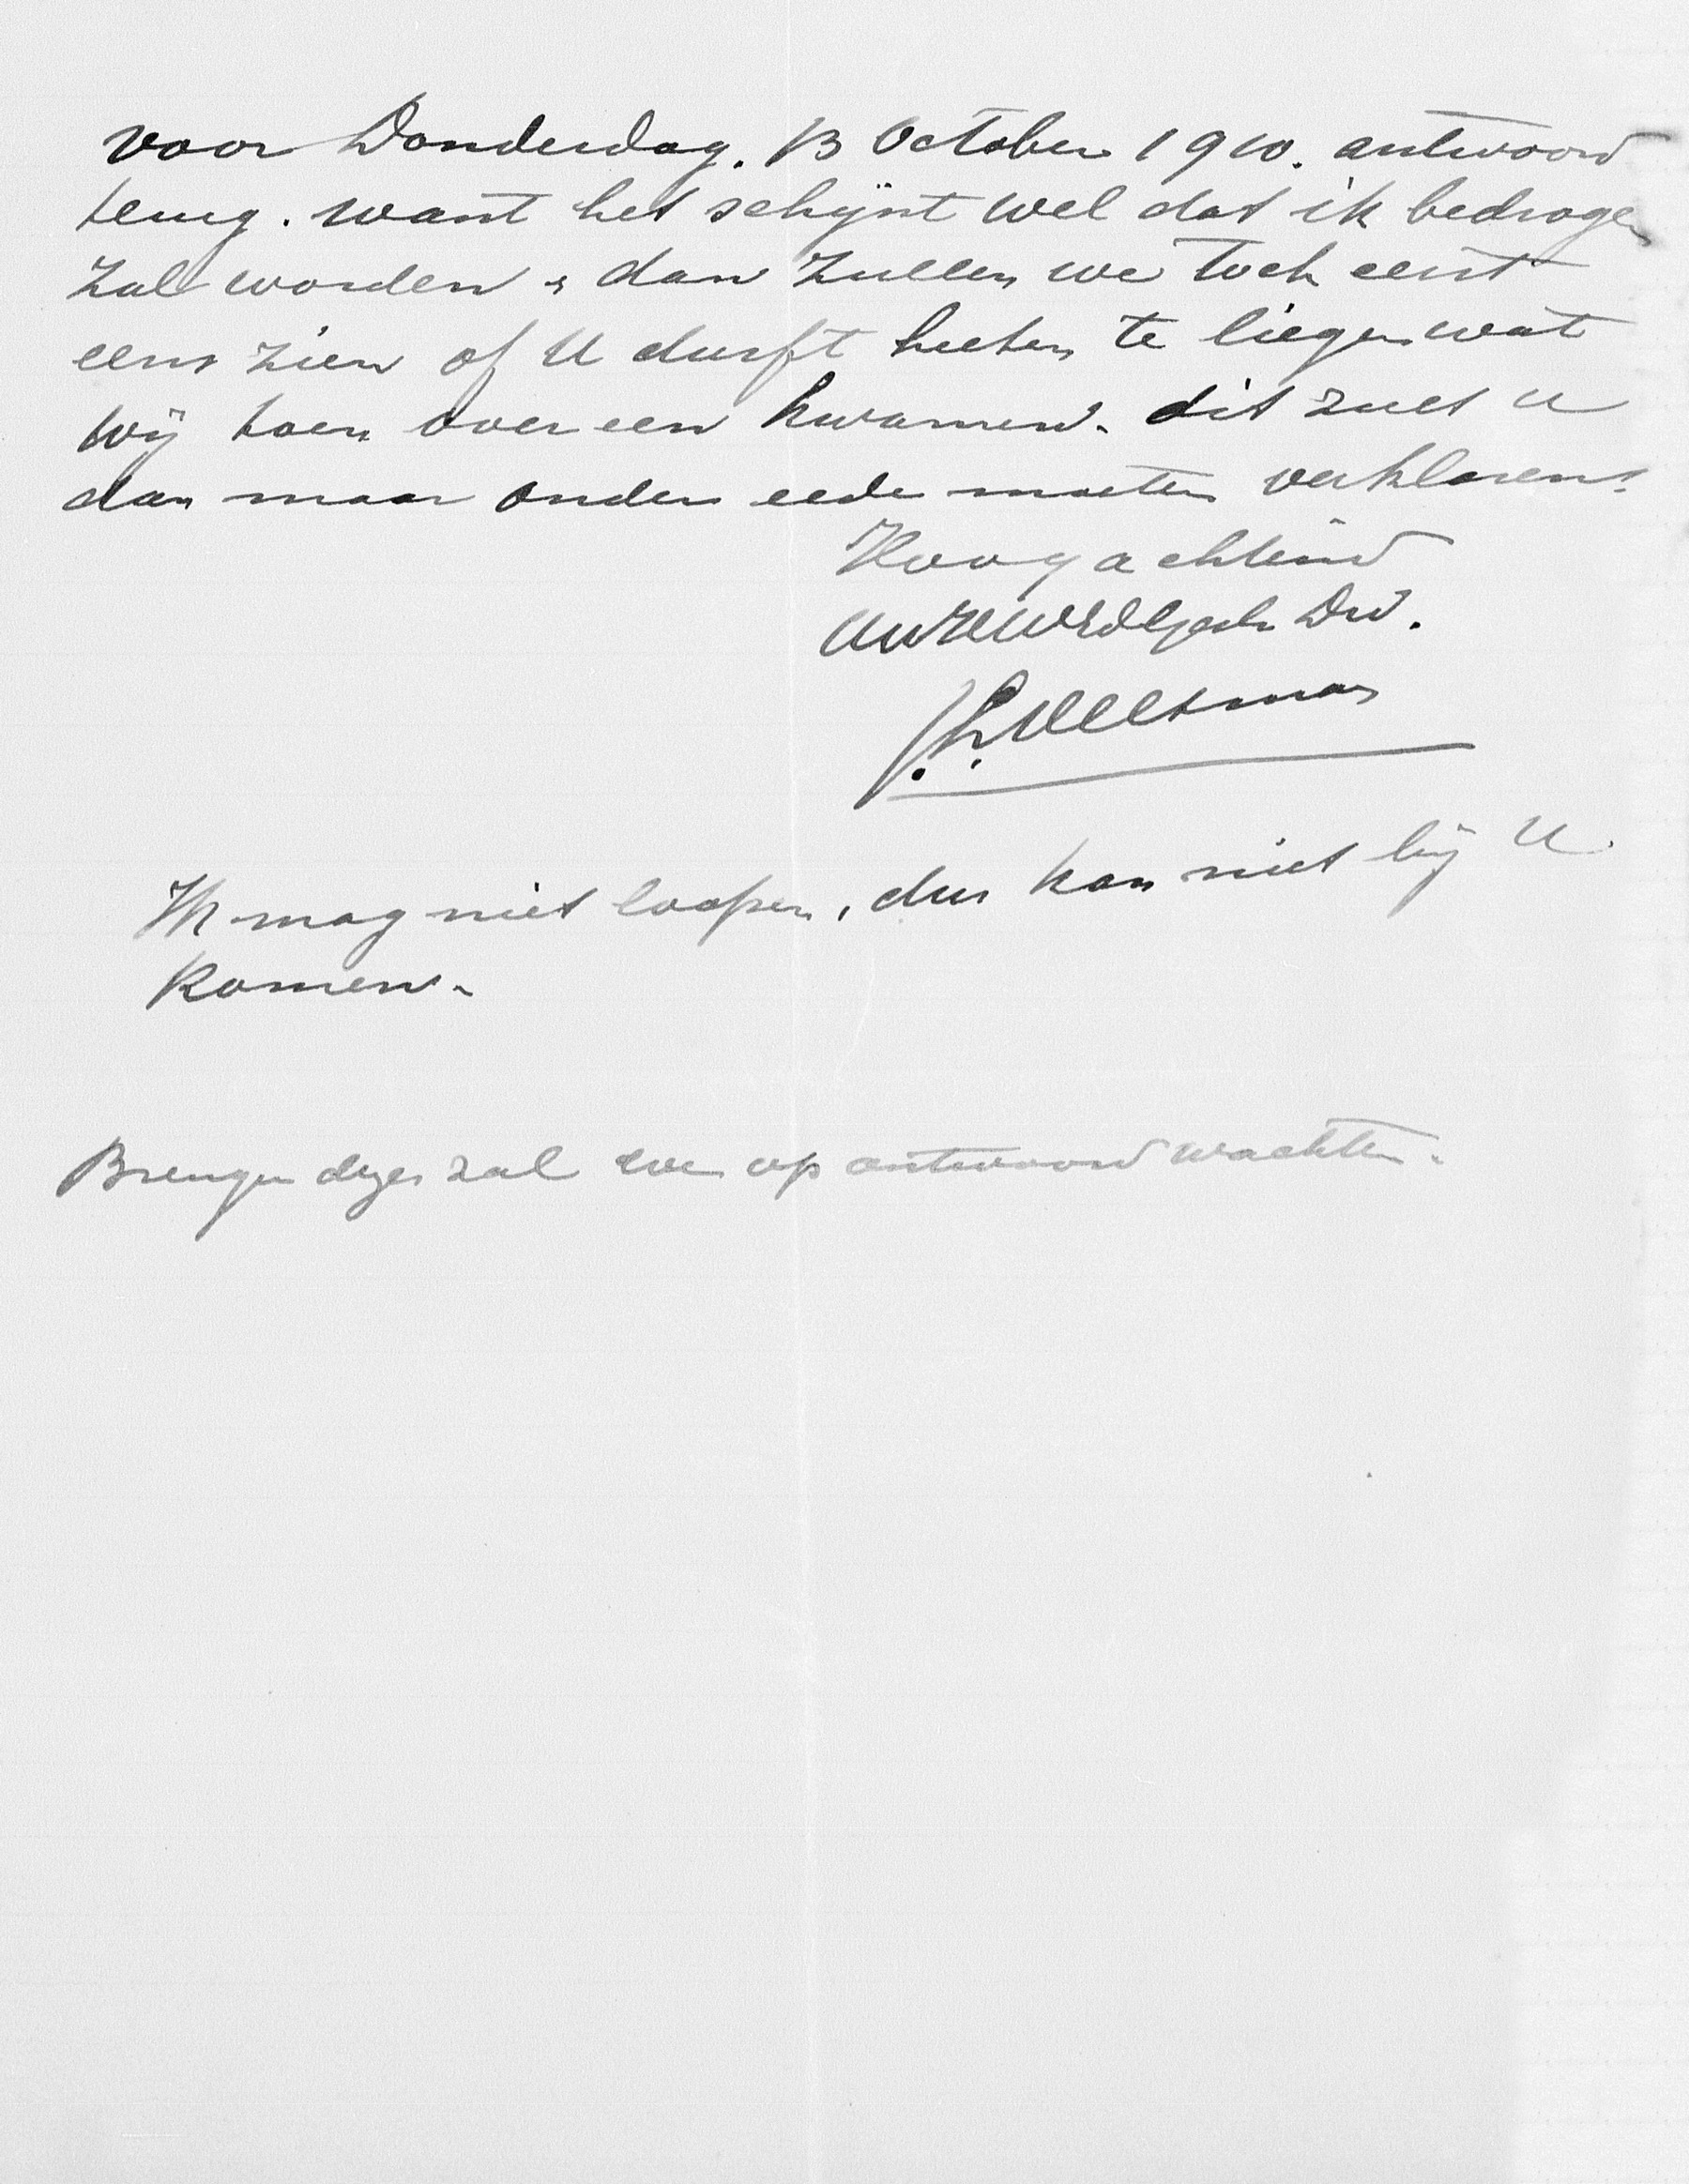 voor Donderdag. 13 October 1910. antwoord
terug. want het schijnt wel dat ik bedrogen
zal worden, dan zullen we toch eerst
eens zien of U durft heeten te liegen wat
wij toen over een kwamen. dit zult U
dan maar onder eede moeten verklaren.
Hoogachtend
UWEdlGeb Dw.
Ik mag niet loopen, dus kan niet bij U
komen.
Brenger dezes zal even op antwoord wachten.